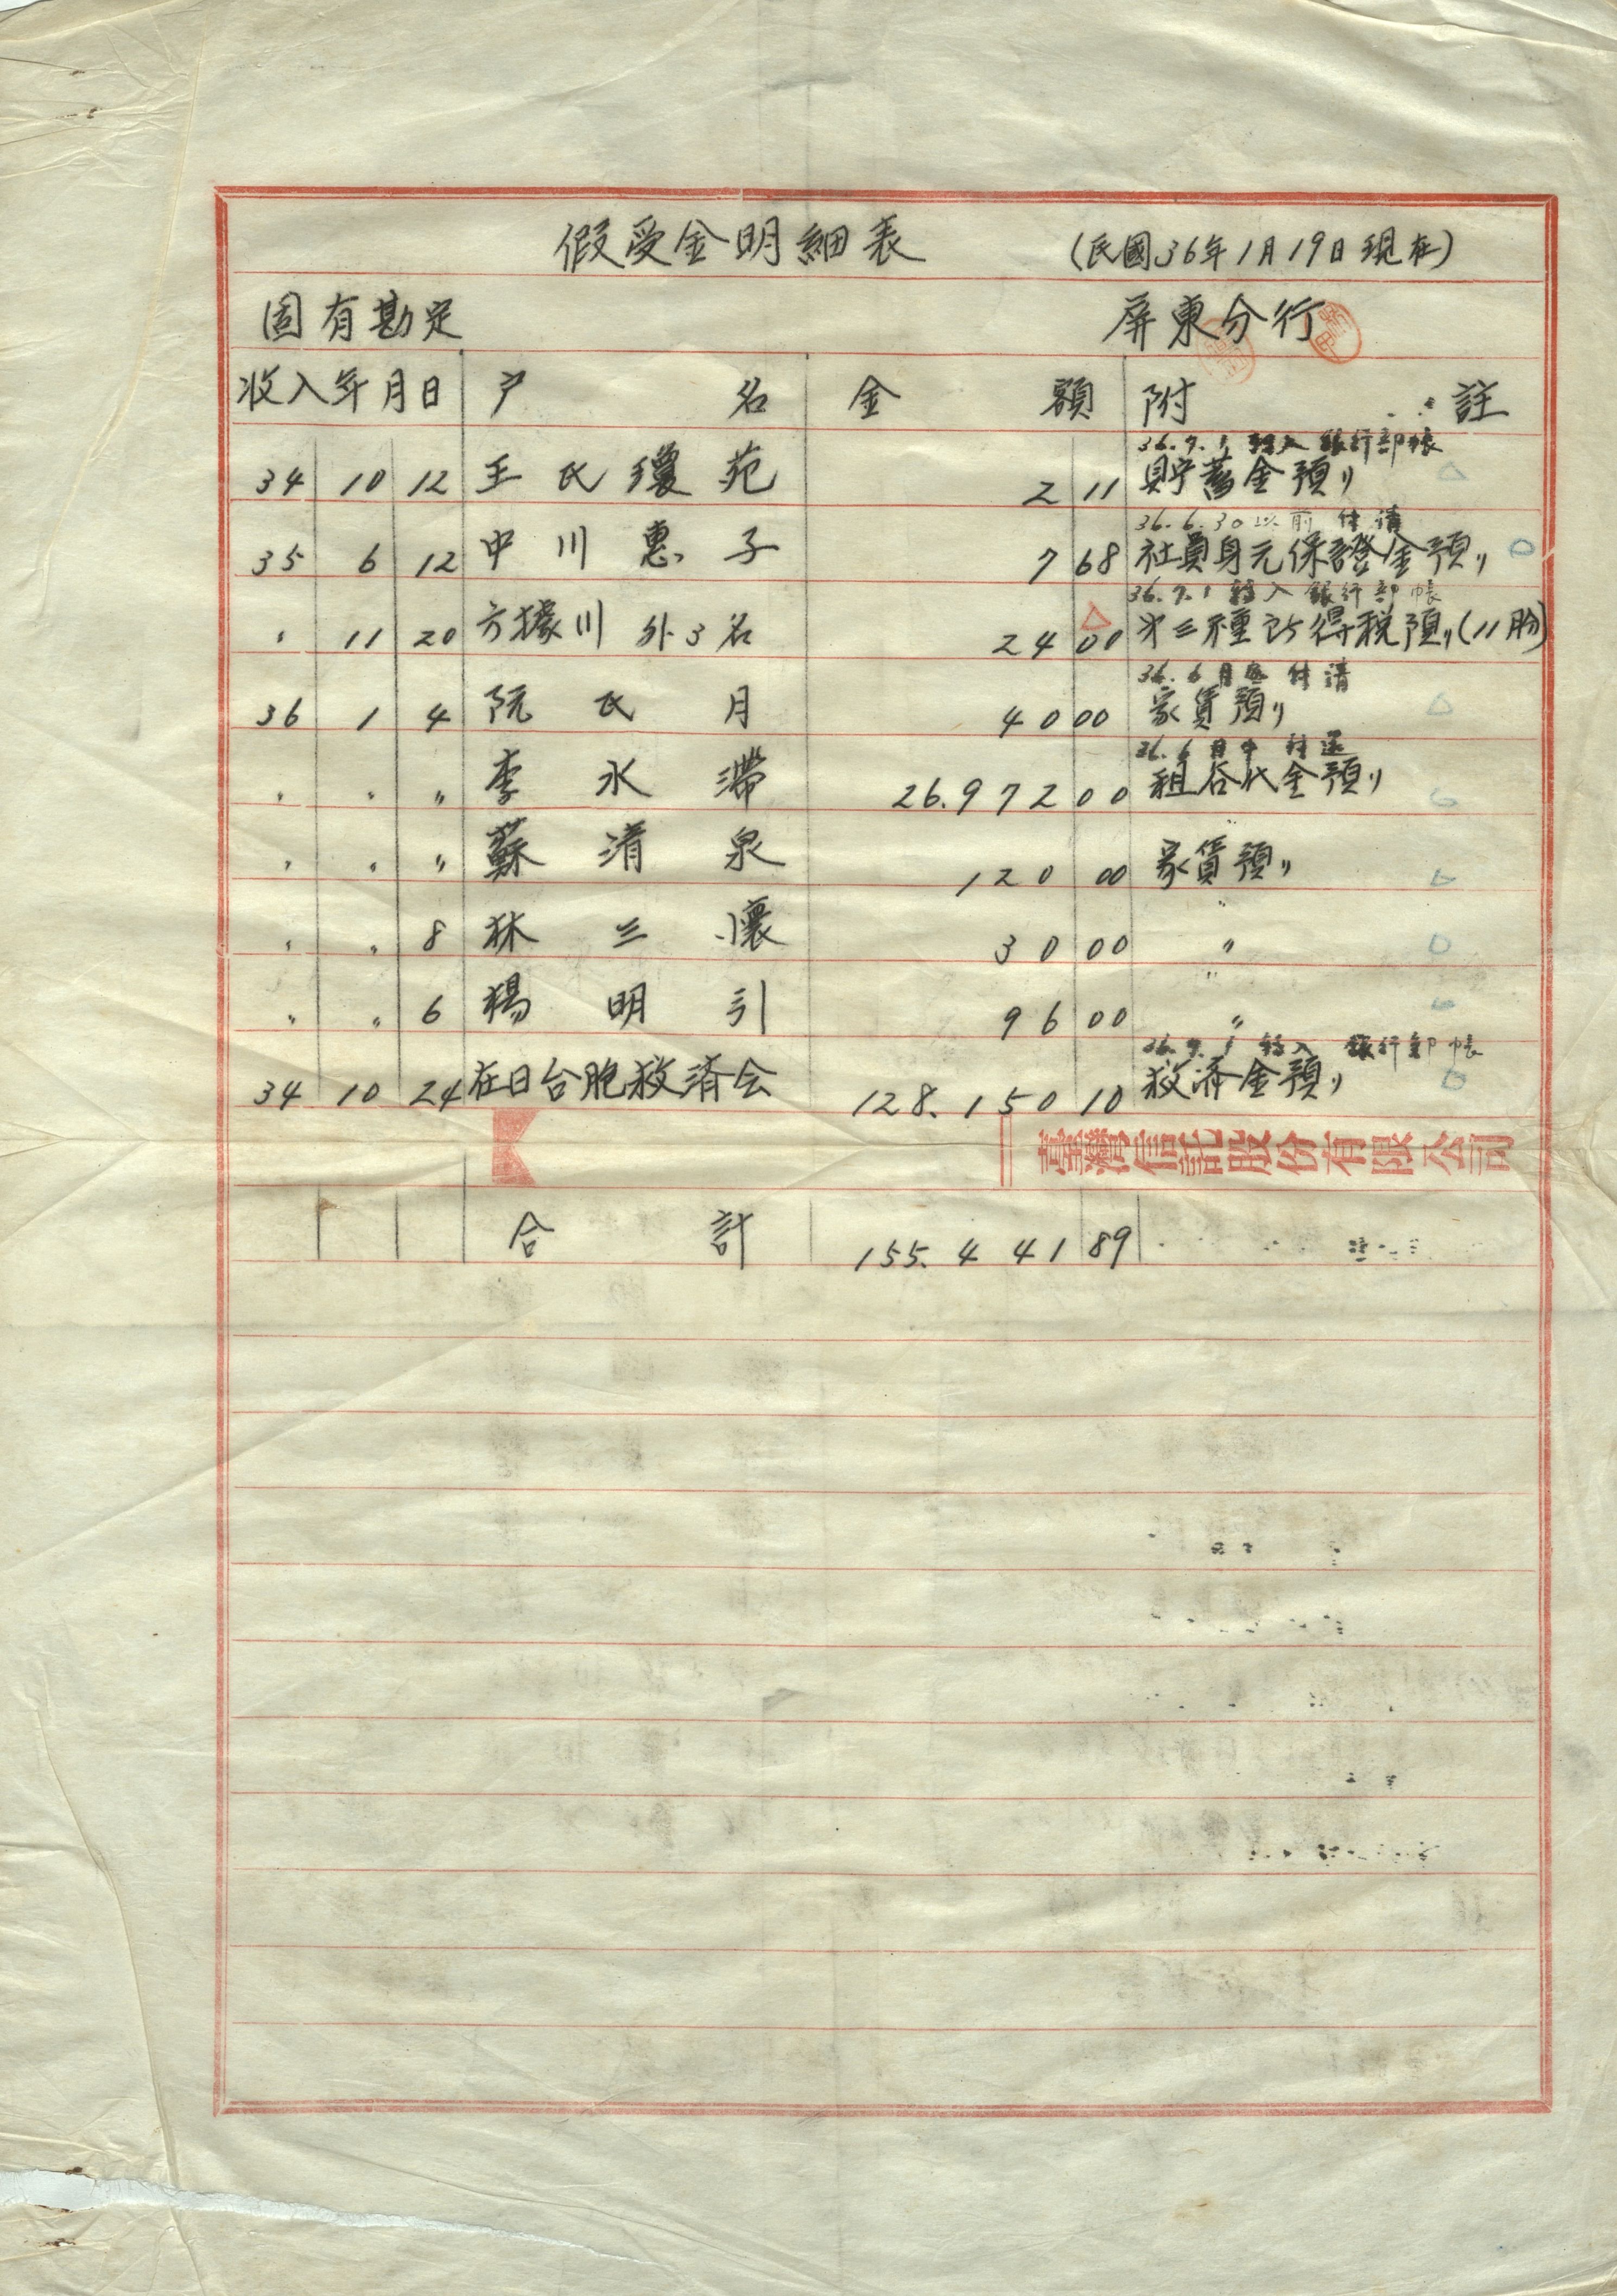 假受金明細表 (民國36年1月19日現在)
固有勘定 屏東分行
收入年月日 戶名 金額 附註
36.7.1 轉入 銀行部帳
34 10 12 王氏瓊苑 2 11 貯蓄金預〃
36.6.30以前 付清
35 6 12 中川惠子 7 68 社員身元保證金預〃
36.7.1 轉入 銀行部帳
〃 11 20 方據川 外3名 24 00 第三種所得稅預〃(11月份)
36.6月底 付清
36 1 4 阮氏月 40 00 家賃預〃
36.6月中 付還
〃 〃 〃 李水滯 26.972 00 租谷代金預〃
〃 〃 〃 蘇清泉 120 00 家賃預〃
〃 〃 8 林三懷 30 00 〃
〃 〃 6 楊明引 96 00 〃
36.7.1 轉入 銀行部帳
34 10 24 在日台胞救済会 128.150 10 救濟金預〃
臺灣信託股份有限公司
合計 155.441 89